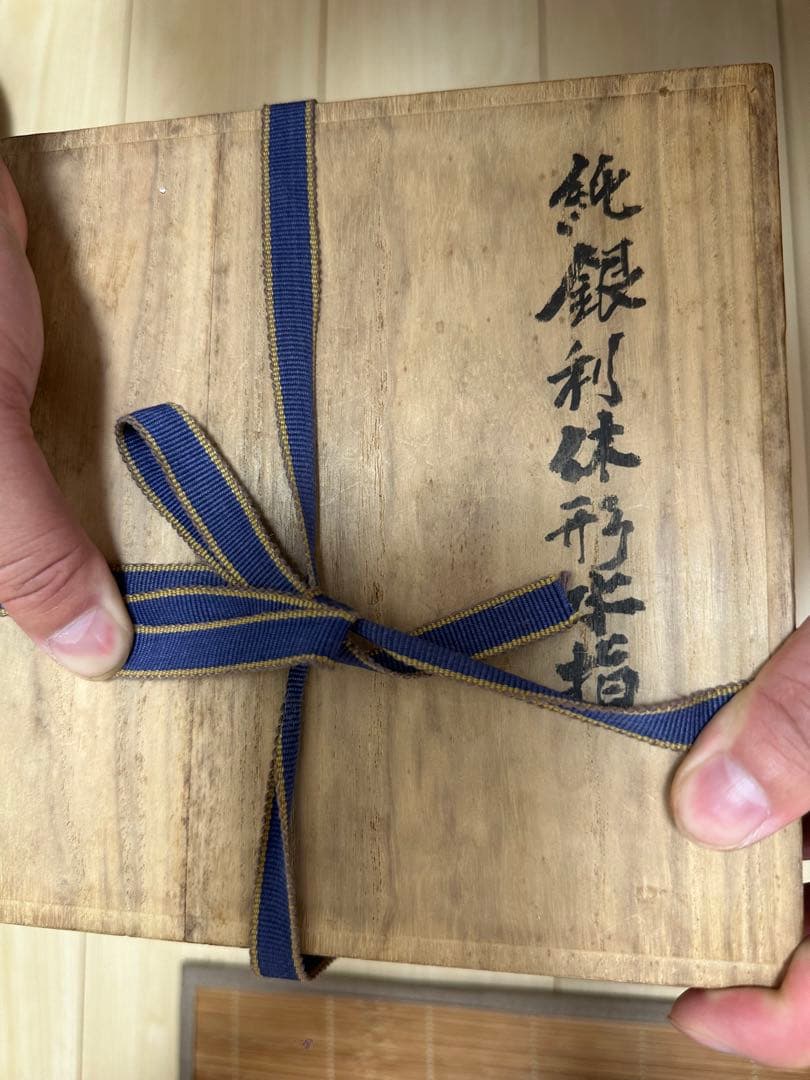 純銀利休形水指